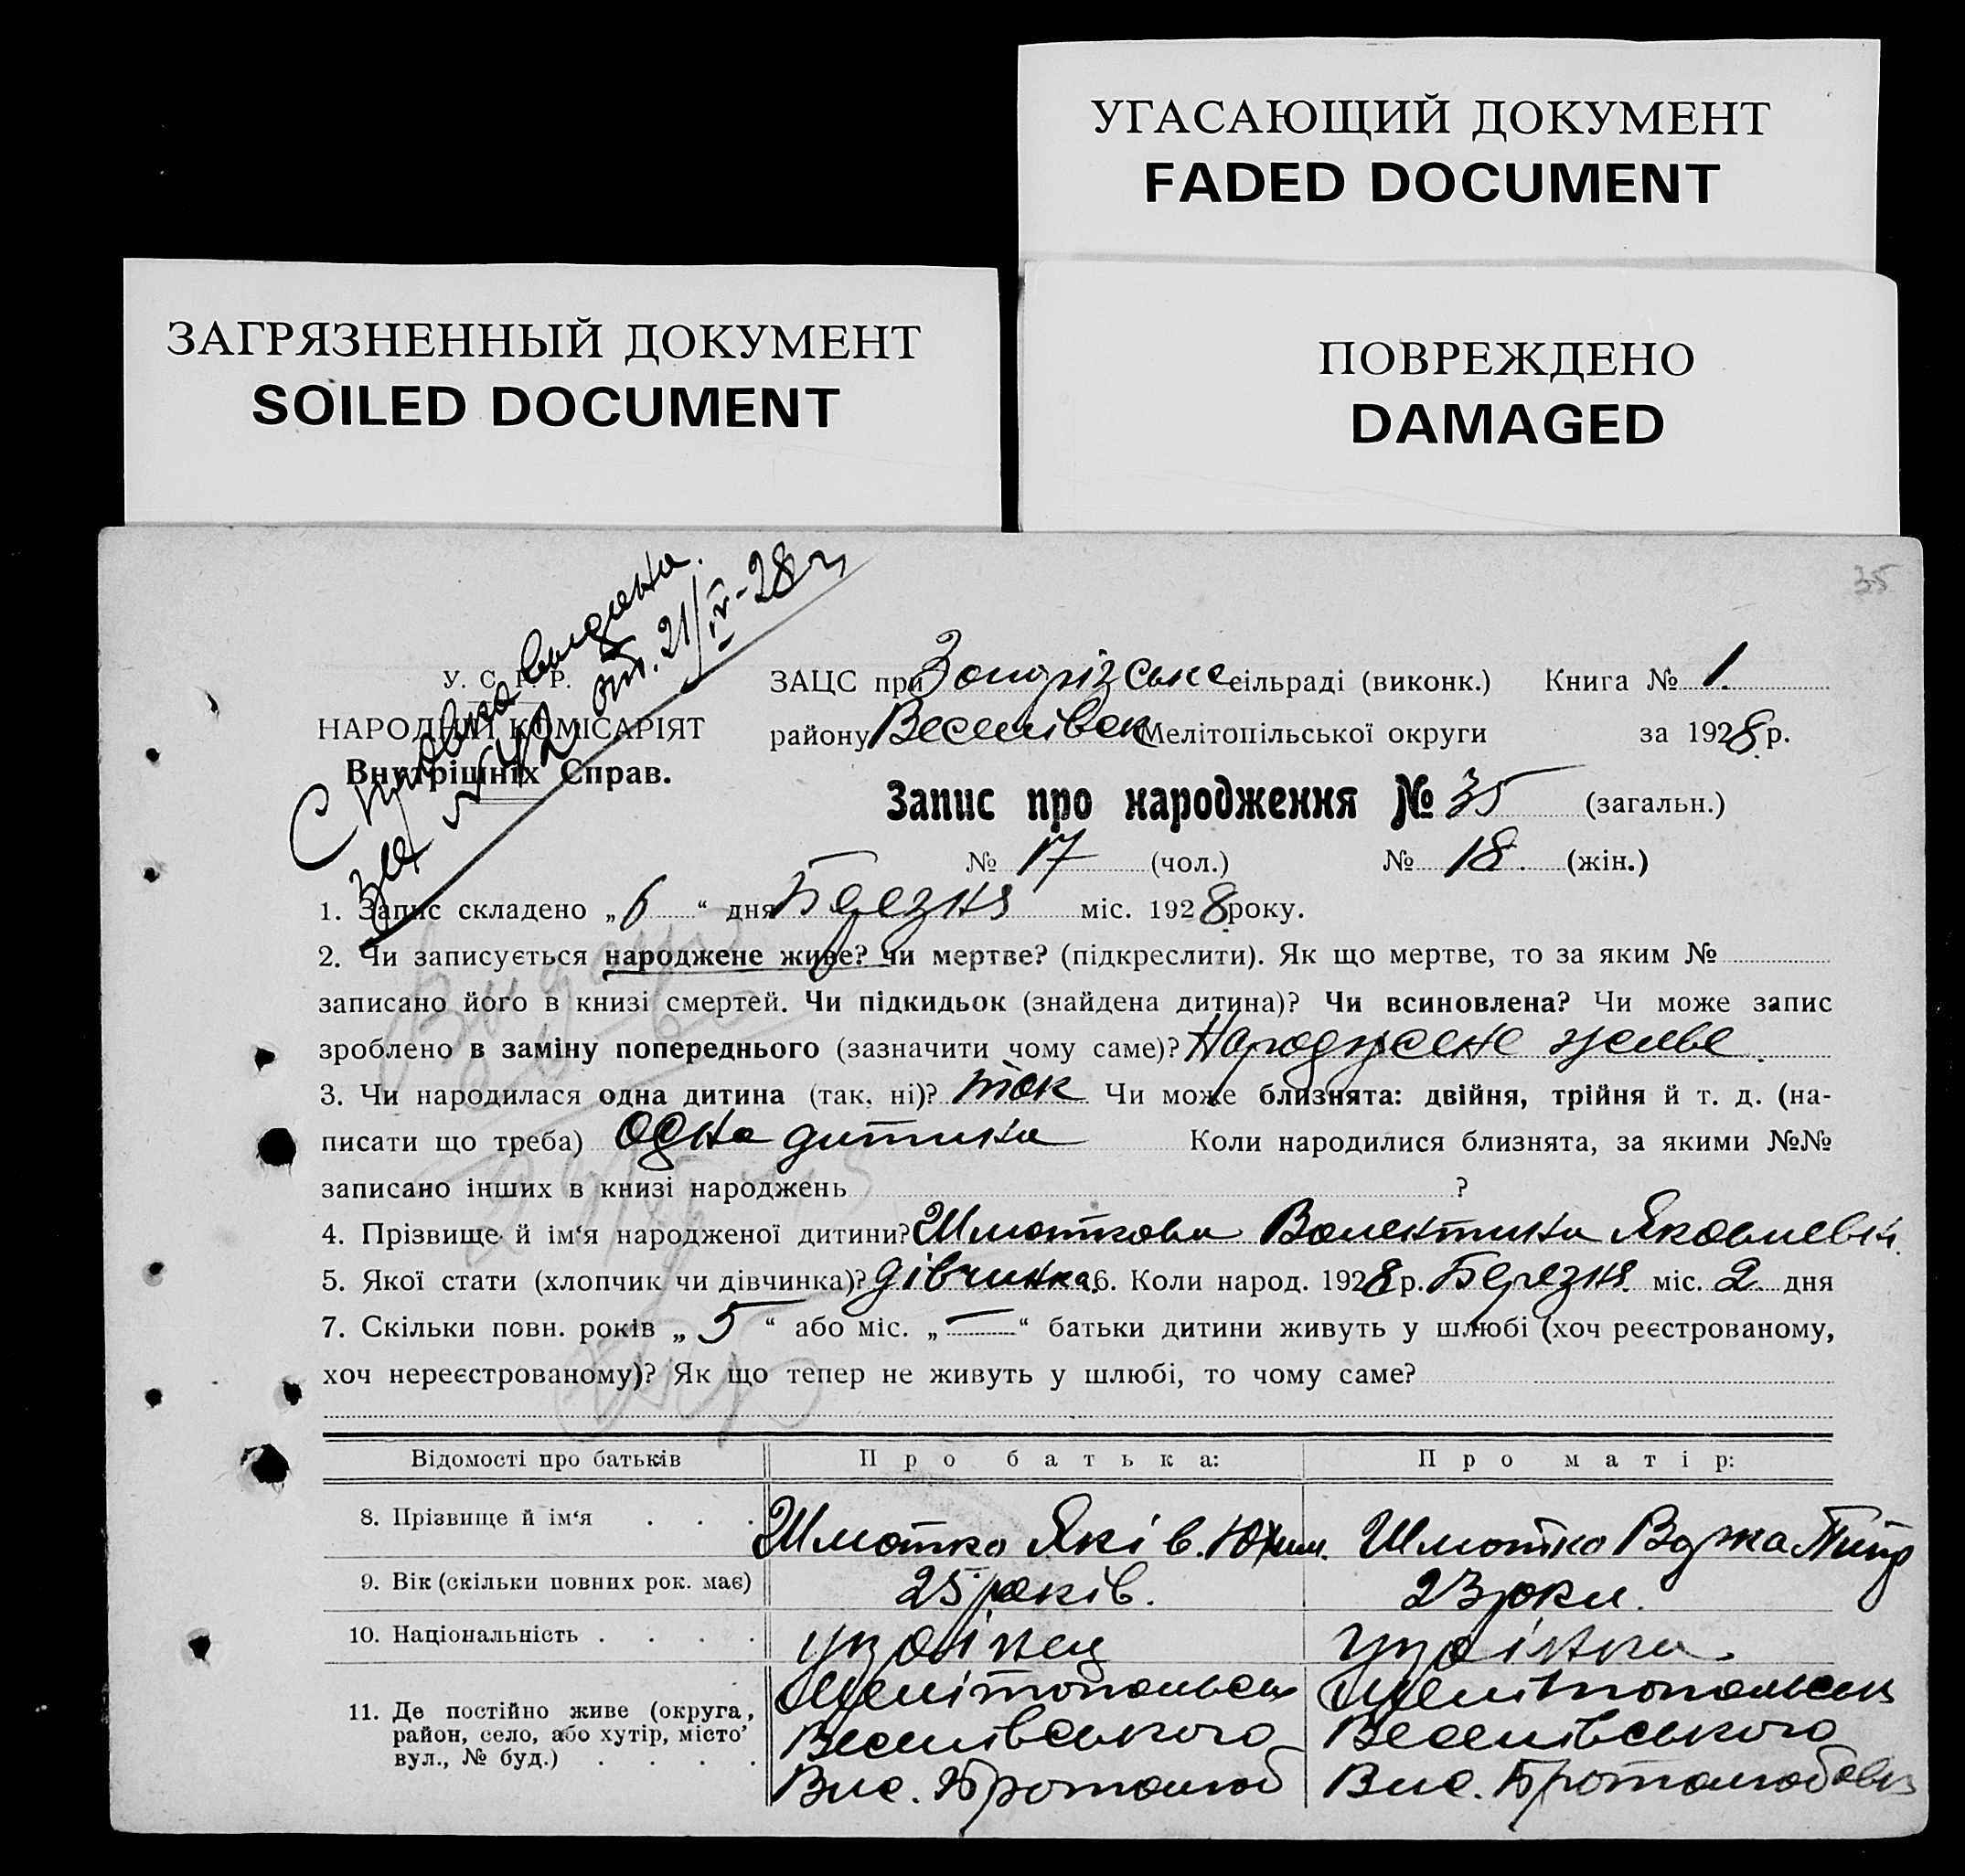 УГАСАЮЩИЙ ДОКУМЕНТ
FADED DOCUMENT
ЗАГРЯЗНЕННЫЙ ДОКУМЕНТ
SOILED DOCUMENT
ПОВРЕЖДЕНО
DAMAGED
35
Справка выдана.
за № 42 от. 21/IV-28 г.
У. С. Р. Р.
НАРОДНИЙ КОМІСАРІЯТ
Внутрішніх Справ.
ЗАЦС при сільраді (виконк.) Книга № 1.
району Веселівськ Мелітопільської округи за 1928 р.
Запис про народження № 35 (загальн.)
№ 17 (чол.) № 18. (жін.)
1. Запис складено „ 6 “ дня Березня міс. 1928 року.
2. Чи записується народжене живе? чи мертве? (підкреслити). Як що мертве, то за яким №
записано його в книзі смертей. Чи підкидьок (знайдена дитина)? Чи всиновлена? Чи може запис
зроблено в заміну попереднього (зазначити чому саме)? Народжене живе.
3. Чи народилася одна дитина (так, ні)? так Чи може близнята: двійня, трійня й т. д. (на-
писати що треба) Одна дитина Коли народилися близнята, за якими №№
записано інших в книзі народжень ?
4. Прізвище й ім‘я народженої дитини? Шматкова Валентина Яковлевн.
5. Якої стати (хлопчик чи дівчинка)? дівчинка. 6. Коли народ. 1928 р. Березня. міс. 2 дня
7. Скільки повн. років „ 5 “ або міс. „ — “ батьки дитини живуть у шлюбі (хоч реєстрованому,
хоч нереєстрованому)? Як що тепер не живуть у шлюбі, то чому саме?
Відомості про батьків Про батька: Про матір:
8. Прізвище й ім‘я . . . Шматко Яків. Юхим. Шматко
9. Вік (скільки повних рок. має) 25 років. 23 роки.
10. Національність . . . . українец українка.
11. Де постійно живе (округа, район, село, або хутір, місто’ вул., № буд.) . . . .
Мелітопольськ Мелітопольськ
Веселівського Веселівського
Вис. Братолюб Вис. Братолюбовк